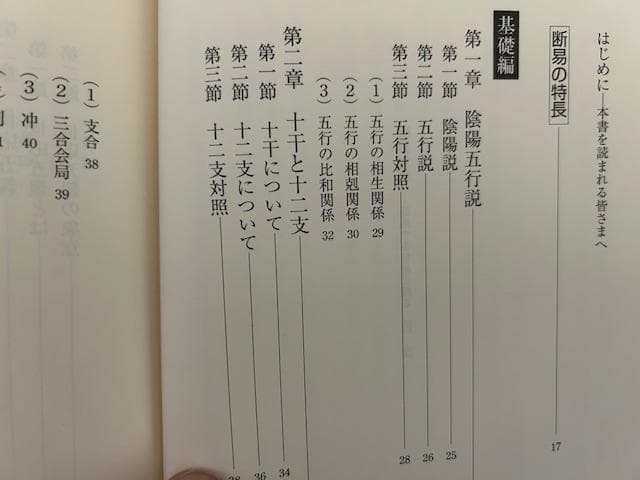 はじめに―本書を読まれる皆さまへ
断易の特長 17
基礎編
第一章 陰陽五行説
第一節 陰陽説 25
第二節 五行説 26
第三節 五行対照 28
(1) 五行の相生関係 29
(2) 五行の相剋関係 30
(3) 五行の比和関係 32
第二章 十干と十二支
第一節 十干について 34
第二節 十二支について 36
第三節 十二支対照 38
(1) 支合 38
(2) 三合会局 39
(3) 冲 40